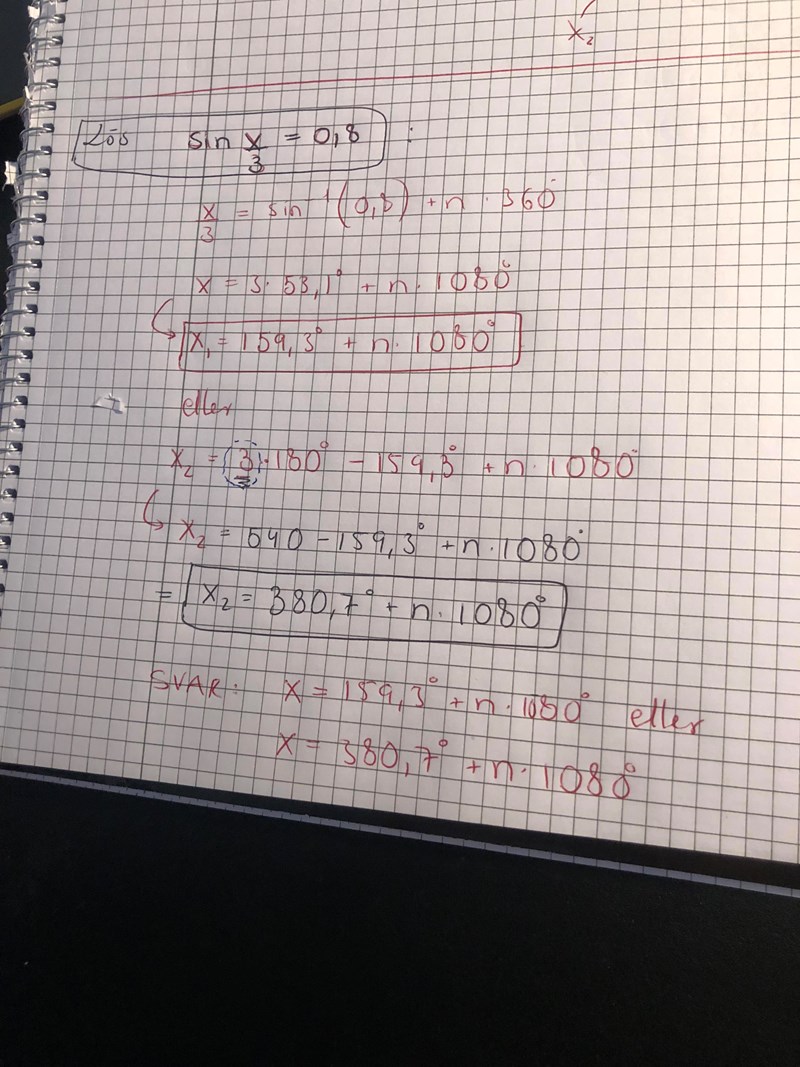 x₂
Lös sin x/3 = 0,8 :
x/3 = sin⁻¹(0,8) + n · 360°
x = 3 · 53,1° + n · 1080°
x₁ = 159,3° + n · 1080°
eller
x₂ = (3) · 180° - 159,3° + n · 1080°
x₂ = 540 - 159,3° + n · 1080°
= x₂ = 380,7° + n · 1080°
SVAR: x = 159,3° + n · 1080° eller
x = 380,7° + n · 1080°